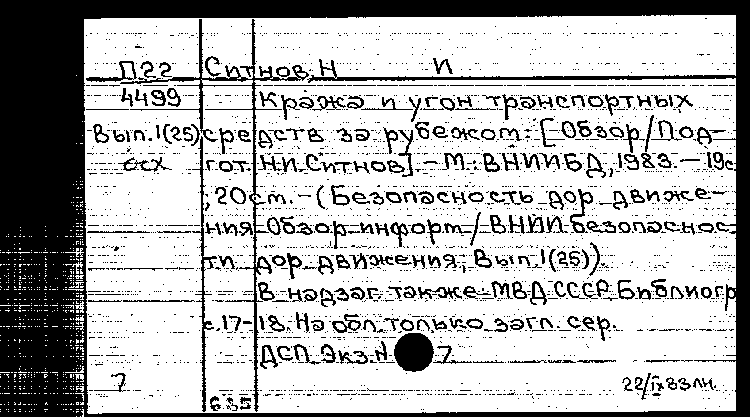 П22 Ситнов, Н И
4499 Кража и угон транспортных
Вып.1(25) средств за рубежом: [Обзор/Под-
осх гот. Н.И.Ситнов]. - М.: ВНИИБД, 1983. - 19с
; 20см. - (Безопасность дор. движе-
ния. Обзор. информ / ВНИИ безопаснос-
ти дор. движения; Вып.1(25)).
В надзаг. также: МВД СССР. Библиогр
с.17-18. На обл. только загл. сер.
ДСП. Экз. N 7
7 22/IX 83 лн.
685